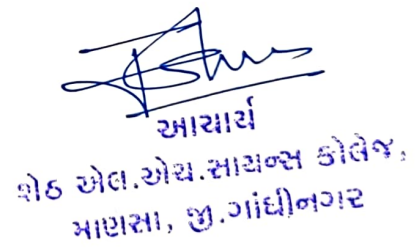 આચાર્ય
શેઠ એલ.એચ.સાયન્સ કોલેજ,
માણસા, જી.ગાંધીનગર